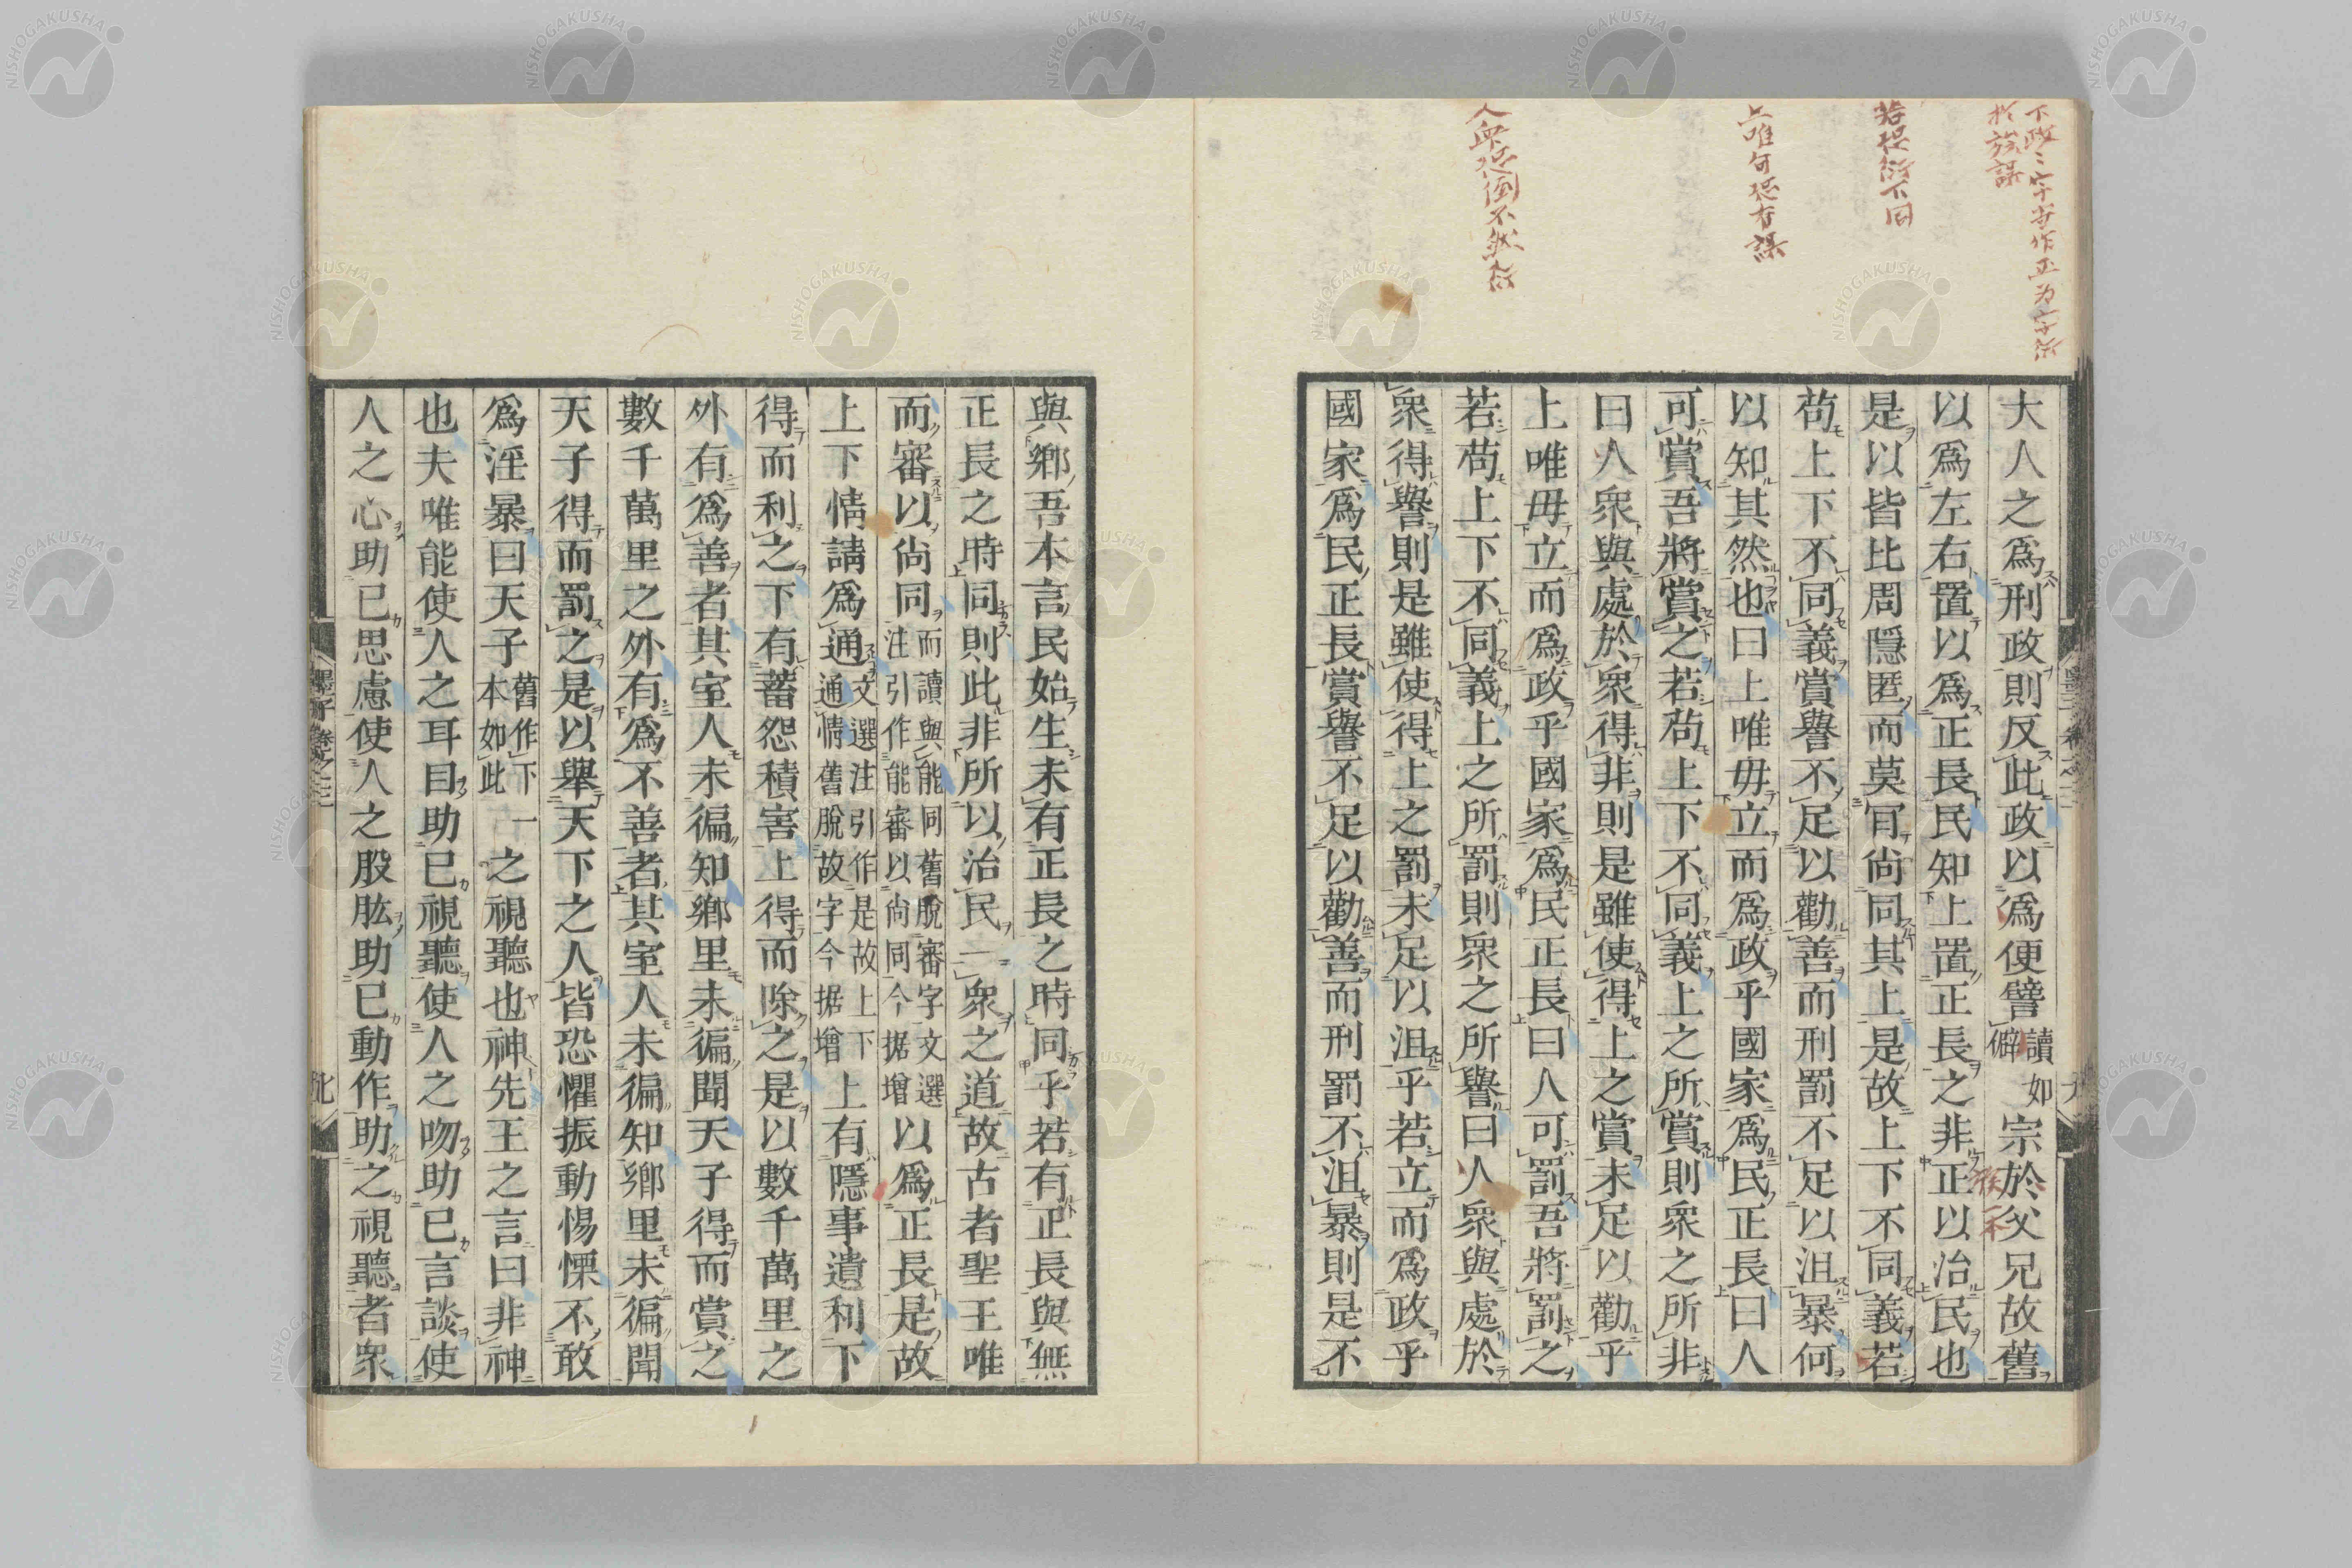 大人之爲刑政則反此政以爲便譬讀如僻宗於父兄故舊
以爲左右置以爲正長民知上置正長之非正以治民也
是以皆比周隱匿而莫肎尚同其上是故上下不同義若
苟上下不同義賞譽不足以勸善而刑罰不足以沮暴何
以知其然也曰上唯毋立而爲政乎國家爲民正長曰人
可賞吾將賞之若苟上下不同義上之所賞則衆之所非
曰人衆與處於衆得非則是雖使得上之賞未足以勸乎
上唯毋立而爲政乎國家爲民正長曰人可罰吾將罰之
若苟上下不同義上之所罰則衆之所譽曰人衆與處於
衆得譽則是雖使得上之罰未足以沮乎若立而爲政乎
國家爲民正長賞譽不足以勸善而刑罰不沮暴則是不
與鄉吾本言民始生未有正長之時同乎若有正長與無
正長之時同則此非所以治民一衆之道故古者聖王唯
而審以尚同而讀與能同舊脫審字文選注引作能審以尚同今据增以爲正長是故
上下情請爲通文選注引作是故上下通情舊脫故字今据增上有隱事遺利下
得而利之下有蓄怨積害上得而除之是以數千萬里之
外有爲善者其室人未徧知鄉里未徧聞天子得而賞之
數千萬里之外有爲不善者其室人未徧知鄉里未徧聞
天子得而罰之是以舉天下之人皆恐懼振動惕慄不敢
爲淫暴曰天子舊作下一本如此之視聽也神先王之言曰非神
也夫唯能使人之耳目助已視聽使人之吻助已言談使
人之心助已思慮使人之股肱助已動作助之視聽者衆
墨子卷之三
下政二字當作正为字衍
於族誤
若恐衍下同
上唯句恐有誤
人衆恐倒不然衍
NISHOGAKUSHA